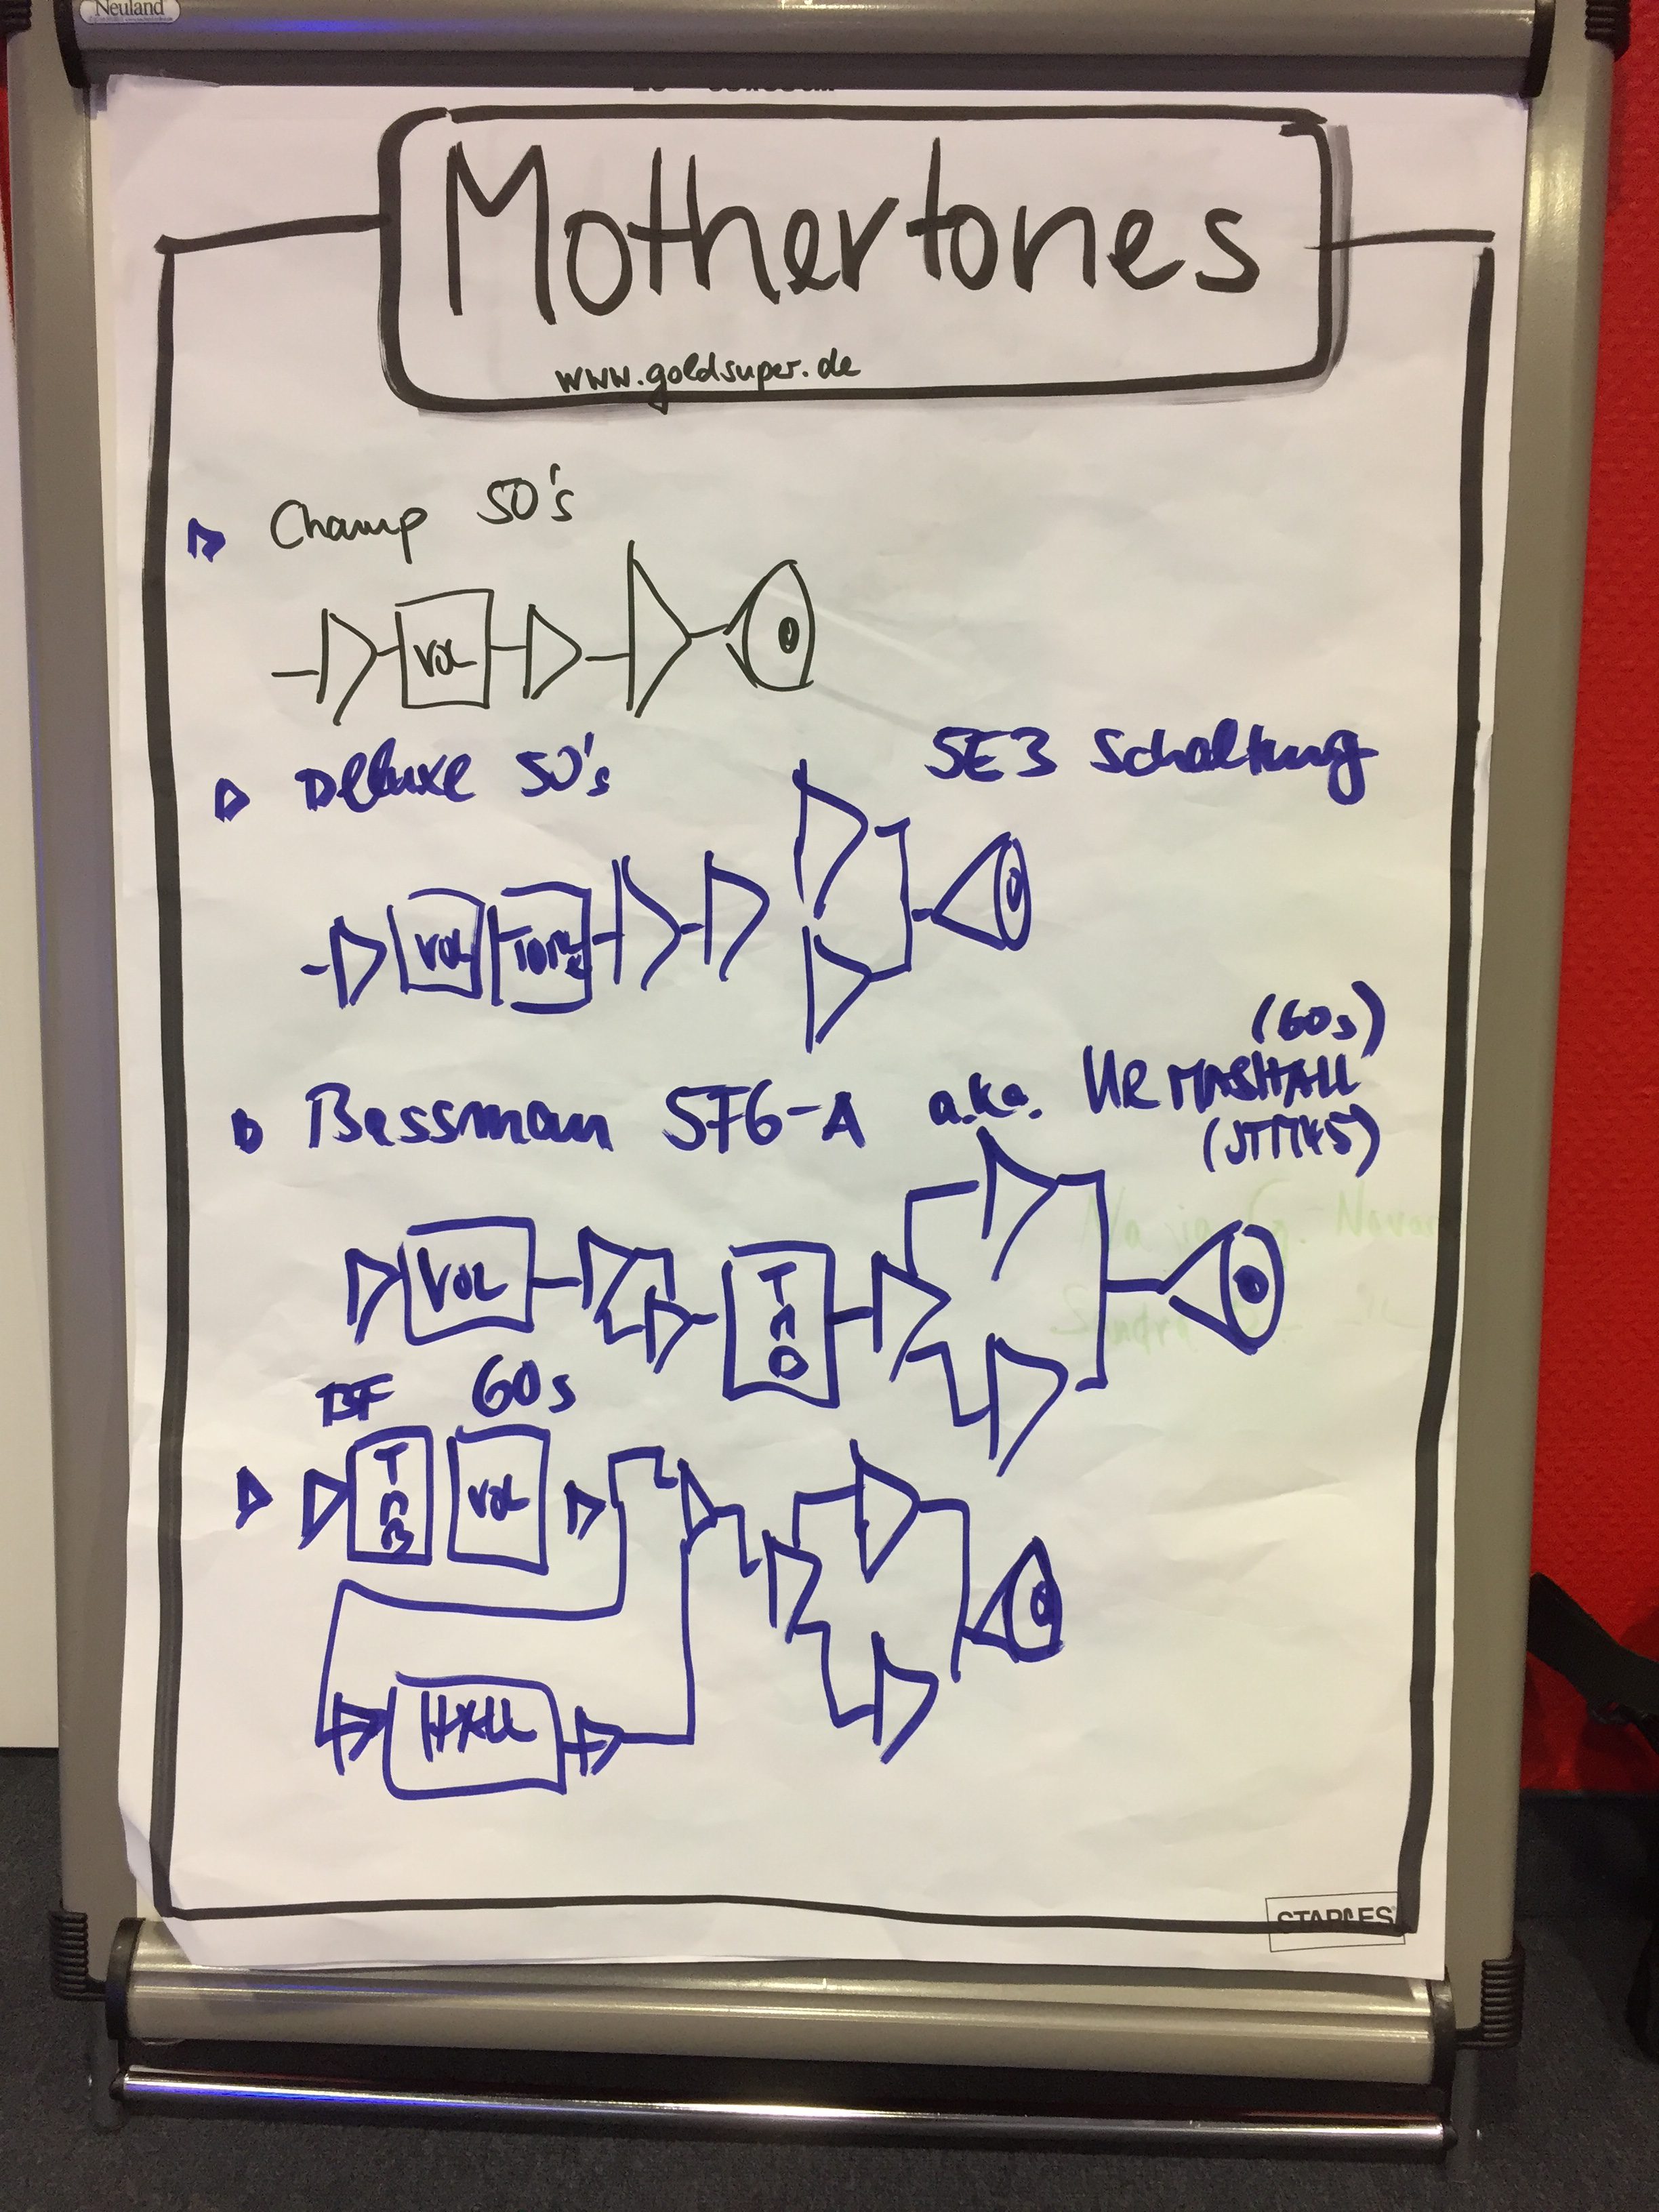 Neuland
Mothertones
www.goldsuper.de
Champ 50's
VOL
Delluxe 50's
5E3 Schaltung
VOL TONE
(60s)
Bassman 5F6-A a.k.a. UR MASHALL
(JTM45)
VOL
T
M
B
BF 60s
T
M
B
VOL
HALL
STAPLES